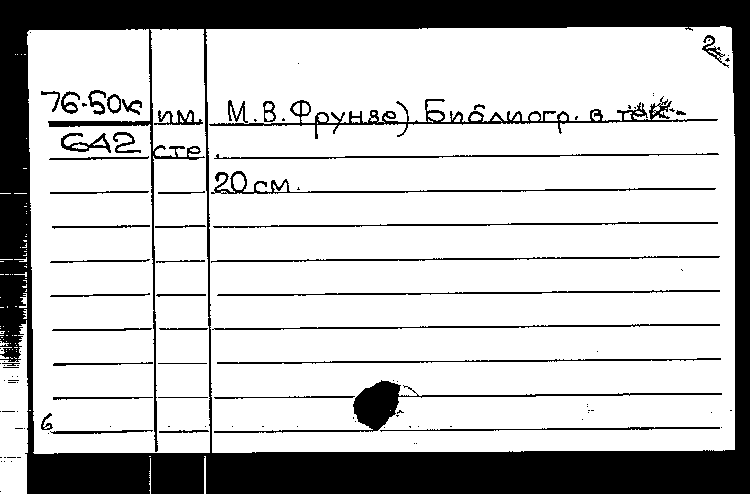 2
76-50к им. М.В.Фрунзе). Библиогр. в тек-
642 сте.
20 см.
6